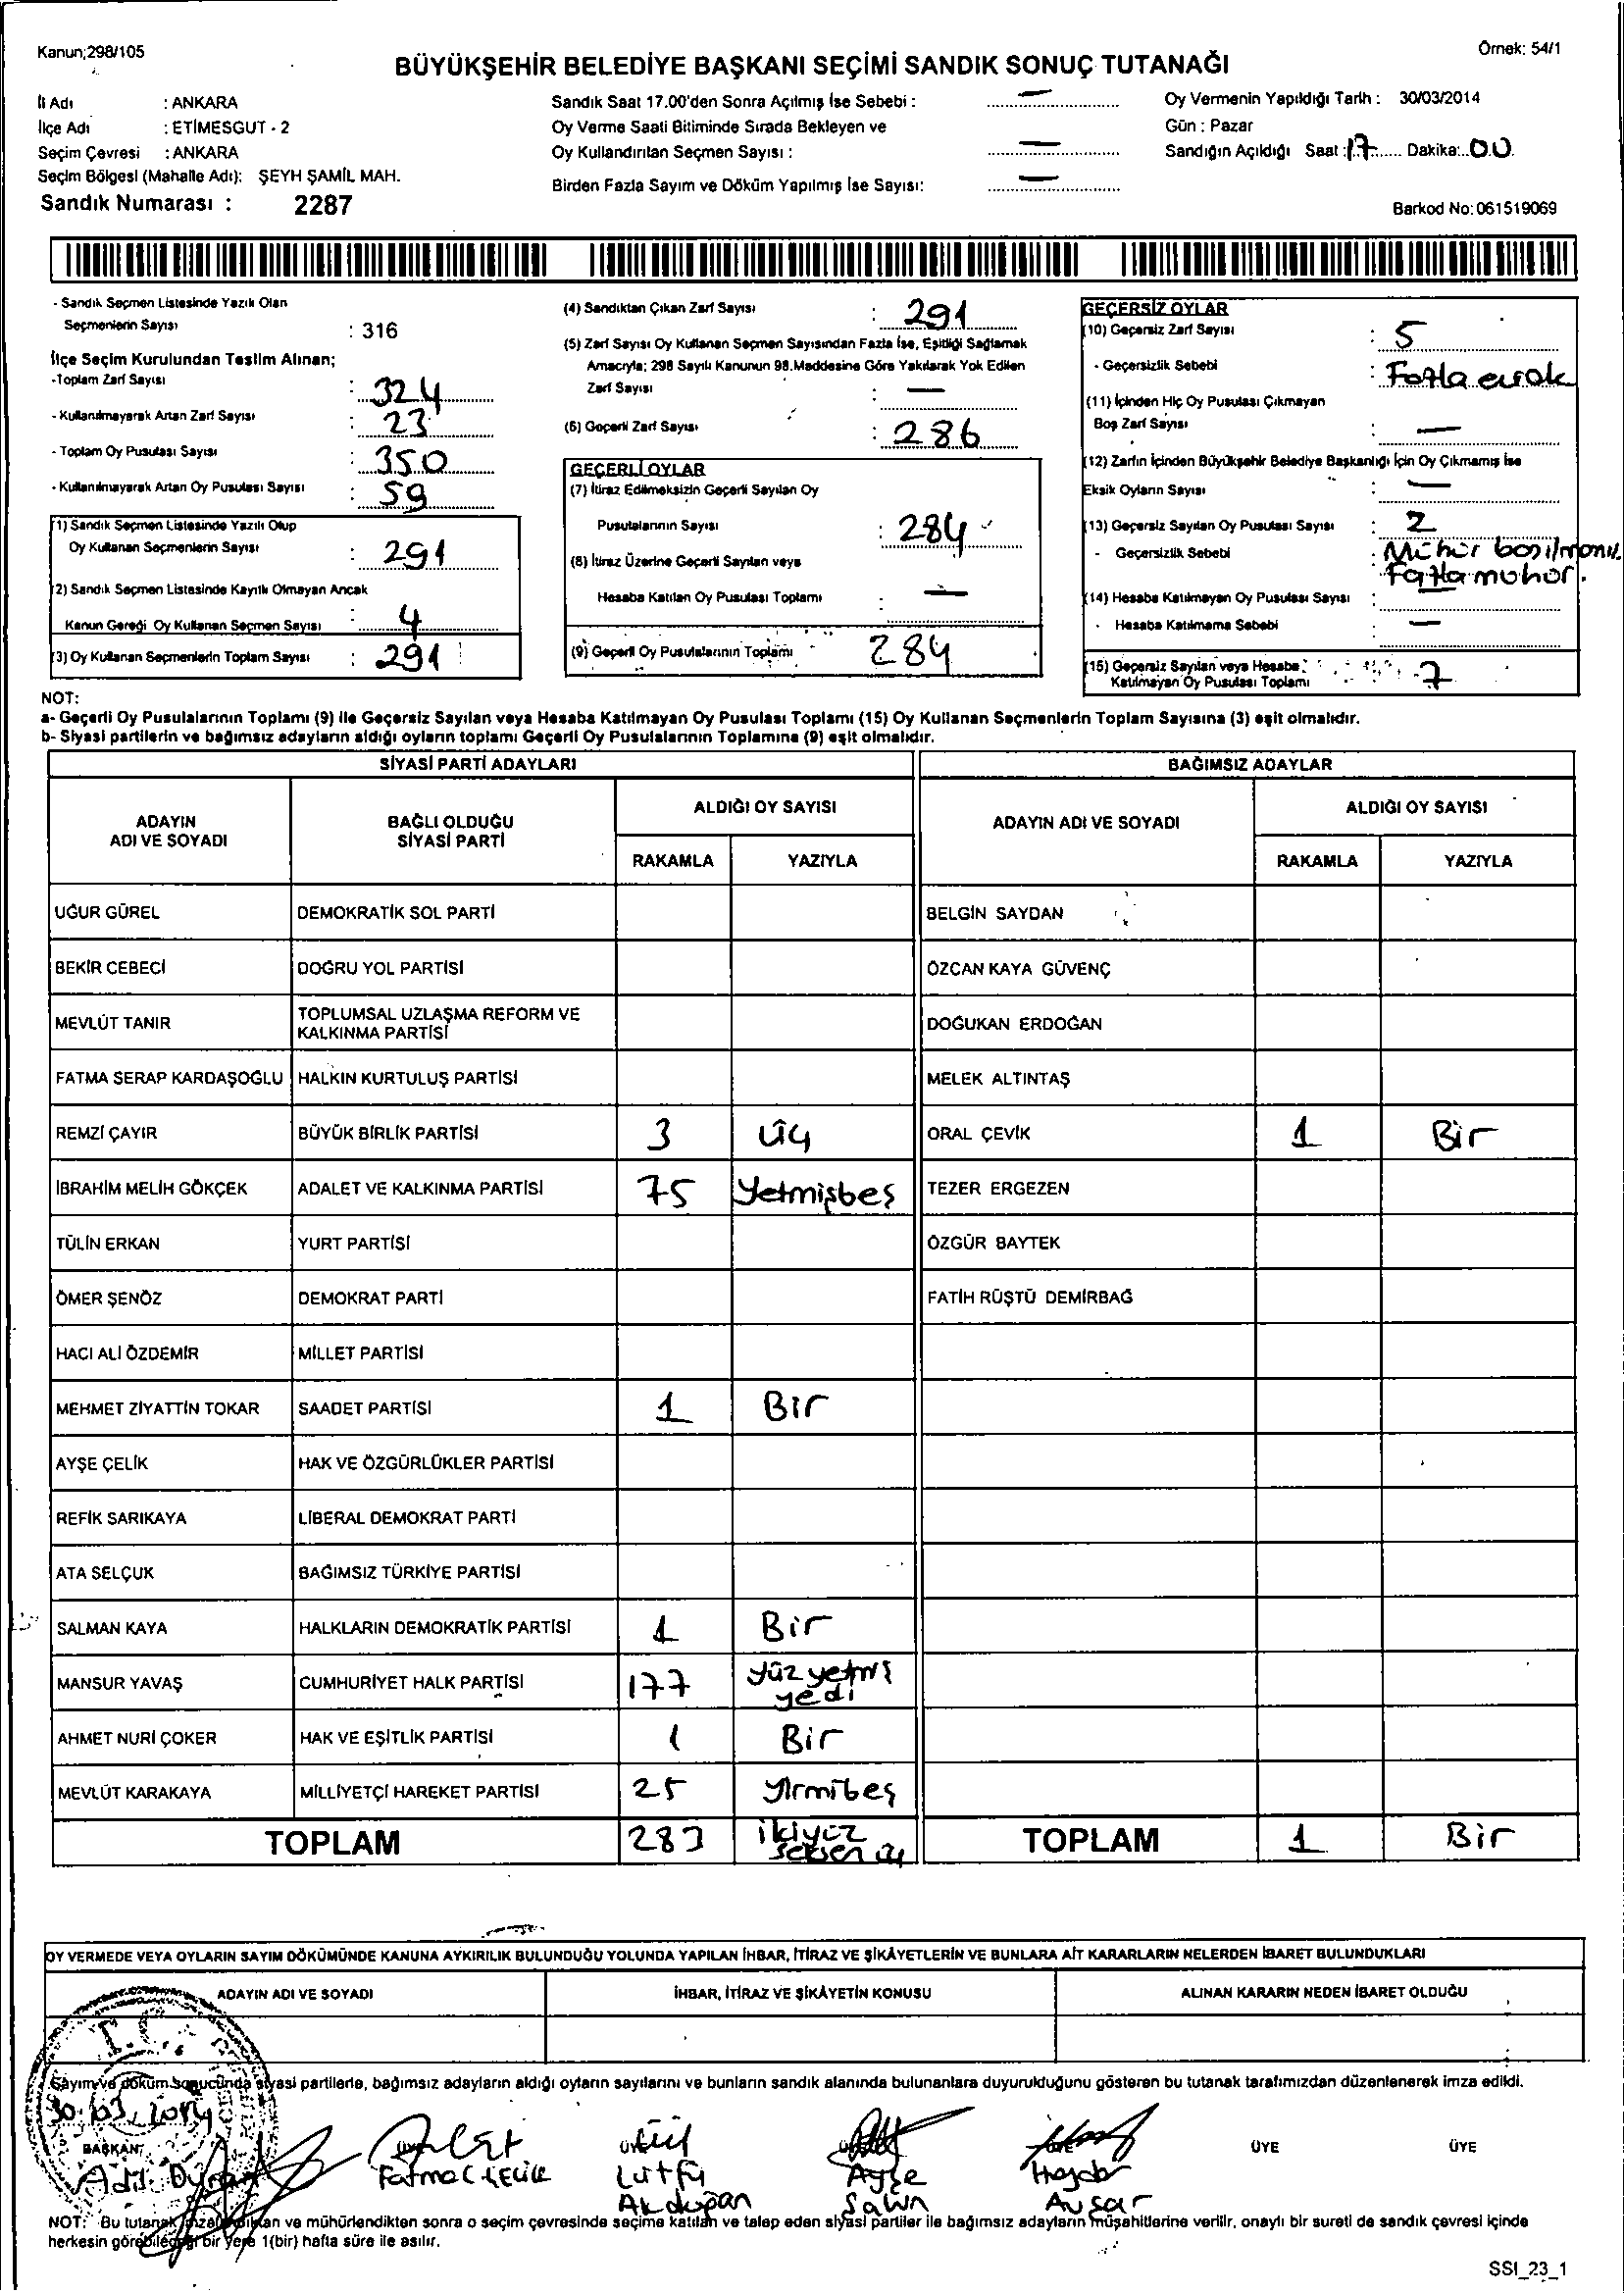 Kanun;298/105
Örnek: 54/1
BÜYÜKŞEHİR BELEDİYE BAŞKANI SEÇİMİ SANDIK SONUÇ TUTANAĞI
İl Adı : ANKARA
İlçe Adı : ETİMESGUT - 2
Seçim Çevresi : ANKARA
Seçim Bölgesi (Mahalle Adı): ŞEYH ŞAMİL MAH.
Sandık Numarası : 2287
Sandık Saat 17.00'den Sonra Açılmış İse Sebebi : —
Oy Verme Saati Bitiminde Sırada Bekleyen ve
Oy Kullandırılan Seçmen Sayısı : —
Birden Fazla Sayım ve Döküm Yapılmış İse Sayısı: —
Oy Vermenin Yapıldığı Tarih : 30/03/2014
Gün : Pazar
Sandığın Açıldığı Saat : 17 Dakika: 00
Barkod No: 061519069
- Sandık Seçmen Listesinde Yazılı Olan
Seçmenlerin Sayısı : 316
İlçe Seçim Kurulundan Teslim Alınan;
-Toplam Zarf Sayısı : 324
- Kullanılmayarak Artan Zarf Sayısı : 23
- Toplam Oy Pusulası Sayısı : 350
- Kullanılmayarak Artan Oy Pusulası Sayısı : 59
(1) Sandık Seçmen Listesinde Yazılı Olup
Oy Kullanan Seçmenlerin Sayısı : 291
(2) Sandık Seçmen Listesinde Kayıtlı Olmayan Ancak
Kanun Gereği Oy Kullanan Seçmen Sayısı : 4
(3) Oy Kullanan Seçmenlerin Toplam Sayısı : 291
(4) Sandıktan Çıkan Zarf Sayısı : 291
(5) Zarf Sayısı Oy Kullanan Seçmen Sayısından Fazla İse, Eşitliği Sağlamak
Amacıyla; 298 Sayılı Kanunun 98.Maddesine Göre Yakılarak Yok Edilen
Zarf Sayısı : —
(6) Geçerli Zarf Sayısı : 286
GEÇERLİ OYLAR
(7) İtiraz Edilmeksizin Geçerli Sayılan Oy
Pusulalarının Sayısı : 284
(8) İtiraz Üzerine Geçerli Sayılan veya
Hesaba Katılan Oy Pusulası Toplamı : —
(9) Geçerli Oy Pusulalarının Toplamı 284
GEÇERSİZ OYLAR
(10) Geçersiz Zarf Sayısı : 5
- Geçersizlik Sebebi : Fazla evrak
(11) İçinden Hiç Oy Pusulası Çıkmayan
Boş Zarf Sayısı : —
(12) Zarfın İçinden Büyükşehir Belediye Başkanlığı İçin Oy Çıkmamış İse
Eksik Oyların Sayısı : —
(13) Geçersiz Sayılan Oy Pusulası Sayısı : 2
- Geçersizlik Sebebi : Mühür
Fazla mühür.
(14) Hesaba Katılmayan Oy Pusulası Sayısı :
- Hesaba Katılmama Sebebi : —
(15) Geçersiz Sayılan veya Hesaba
Katılmayan Oy Pusulası Toplamı 7
NOT:
a- Geçerli Oy Pusulalarının Toplamı (9) ile Geçersiz Sayılan veya Hesaba Katılmayan Oy Pusulası Toplamı (15) Oy Kullanan Seçmenlerin Toplam Sayısına (3) eşit olmalıdır.
b- Siyasi partilerin ve bağımsız adayların aldığı oyların toplamı Geçerli Oy Pusulalarının Toplamına (9) eşit olmalıdır.
SİYASİ PARTİ ADAYLARI
ADAYIN
ADI VE SOYADI
BAĞLI OLDUĞU
SİYASİ PARTİ
ALDIĞI OY SAYISI
RAKAMLA YAZIYLA
UĞUR GÜREL DEMOKRATİK SOL PARTİ
BEKİR CEBECİ DOĞRU YOL PARTİSİ
MEVLÜT TANIR TOPLUMSAL UZLAŞMA REFORM VE
KALKINMA PARTİSİ
FATMA SERAP KARDAŞOĞLU HALKIN KURTULUŞ PARTİSİ
REMZİ ÇAYIR BÜYÜK BİRLİK PARTİSİ 3 üç
İBRAHİM MELİH GÖKÇEK ADALET VE KALKINMA PARTİSİ 75 Yetmişbeş
TÜLİN ERKAN YURT PARTİSİ
ÖMER ŞENÖZ DEMOKRAT PARTİ
HACI ALİ ÖZDEMİR MİLLET PARTİSİ
MEHMET ZİYATTİN TOKAR SAADET PARTİSİ 1 Bir
AYŞE ÇELİK HAK VE ÖZGÜRLÜKLER PARTİSİ
REFİK SARIKAYA LİBERAL DEMOKRAT PARTİ
ATA SELÇUK BAĞIMSIZ TÜRKİYE PARTİSİ
SALMAN KAYA HALKLARIN DEMOKRATİK PARTİSİ 1 Bir
MANSUR YAVAŞ CUMHURİYET HALK PARTİSİ 177 Yüz yetmiş
yedi
AHMET NURİ ÇOKER HAK VE EŞİTLİK PARTİSİ 1 Bir
MEVLÜT KARAKAYA MİLLİYETÇİ HAREKET PARTİSİ 25 Yirmibeş
TOPLAM 283 ikiyüz
seksen üç
BAĞIMSIZ ADAYLAR
ADAYIN ADI VE SOYADI
ALDIĞI OY SAYISI
RAKAMLA YAZIYLA
BELGİN SAYDAN
ÖZCAN KAYA GÜVENÇ
DOĞUKAN ERDOĞAN
MELEK ALTINTAŞ
ORAL ÇEVİK 1 Bir
TEZER ERGEZEN
ÖZGÜR BAYTEK
FATİH RÜŞTÜ DEMİRBAĞ
TOPLAM 1 Bir
OY VERMEDE VEYA OYLARIN SAYIM DÖKÜMÜNDE KANUNA AYKIRILIK BULUNDUĞU YOLUNDA YAPILAN İHBAR, İTİRAZ VE ŞİKÂYETLERİN VE BUNLARA AİT KARARLARIN NELERDEN İBARET BULUNDUKLARI
ADAYIN ADI VE SOYADI İHBAR, İTİRAZ VE ŞİKÂYETİN KONUSU ALINAN KARARIN NEDEN İBARET OLDUĞU
T.C.
Sayım ve döküm sonucunda siyasi partilerle, bağımsız adayların aldığı oyların sayılarını ve bunların sandık alanında bulunanlara duyurulduğunu gösteren bu tutanak tarafımızdan düzenlenerek imza edildi.
30.03.2014
BAŞKAN ÜYE ÜYE ÜYE ÜYE ÜYE ÜYE
Fatma ÇELİK
Lütfü
Akdoğan
Ayşe
Şahin
Haydar
Avşar
NOT: Bu tutanak imzalandıktan ve mühürlendikten sonra o seçim çevresinde seçime katılan ve talep eden siyasi partiler ile bağımsız adayların müşahitlerine verilir, onaylı bir sureti de sandık çevresi içinde
herkesin görebileceği bir yere 1(bir) hafta süre ile asılır.
SSI_23_1